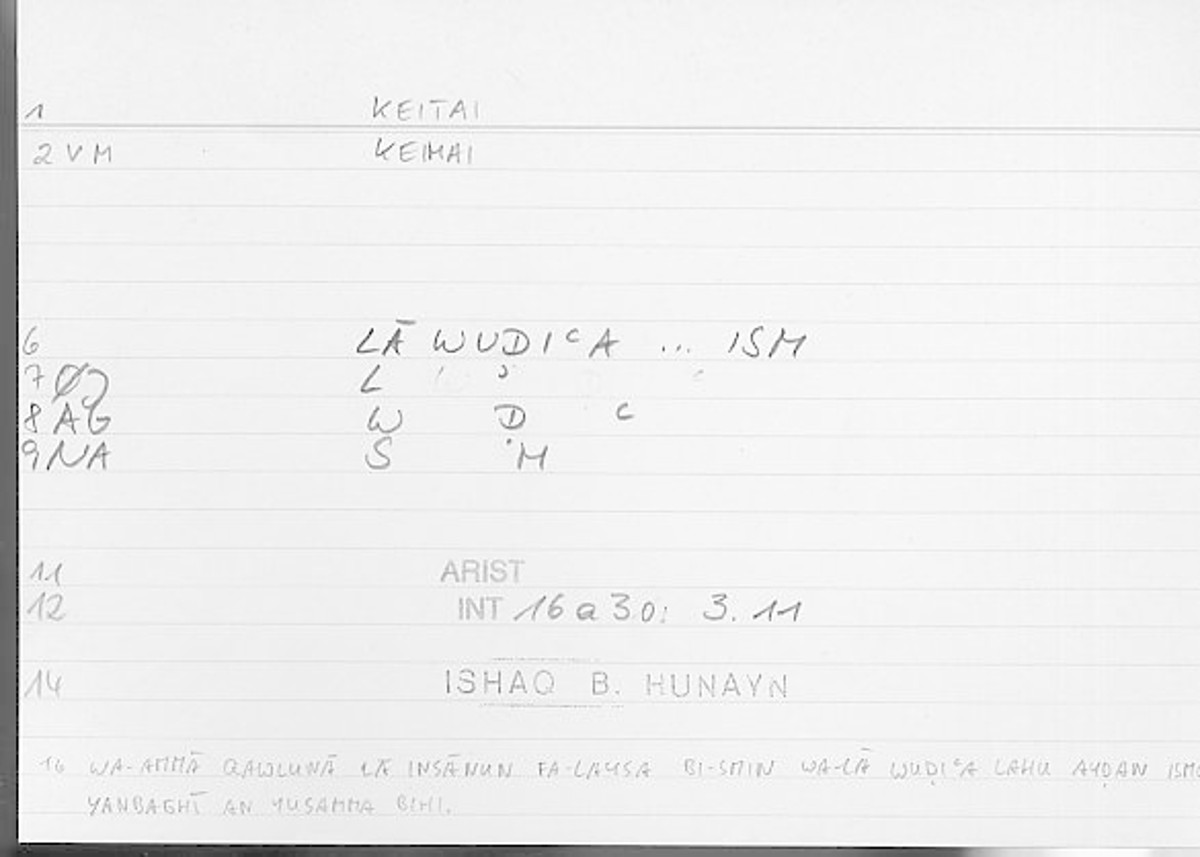 1 KEITAI
2 VM KEIMAI
6 LĀ WUDIᶜA ... ISM
7 L ʾ
8 AG W D ᶜ
9 NA S M
11 ARIST
12 INT 16a30: 3.11
14 ISHAQ B. HUNAYN
16 WA-AMMĀ QAWLUNĀ LĀ INSĀNUN FA-LAYSA BI-SMIN WA-LĀ WUḌIᶜA LAHU AYḌAN
YANBAGHĪ AN YUSAMMA BIHI.